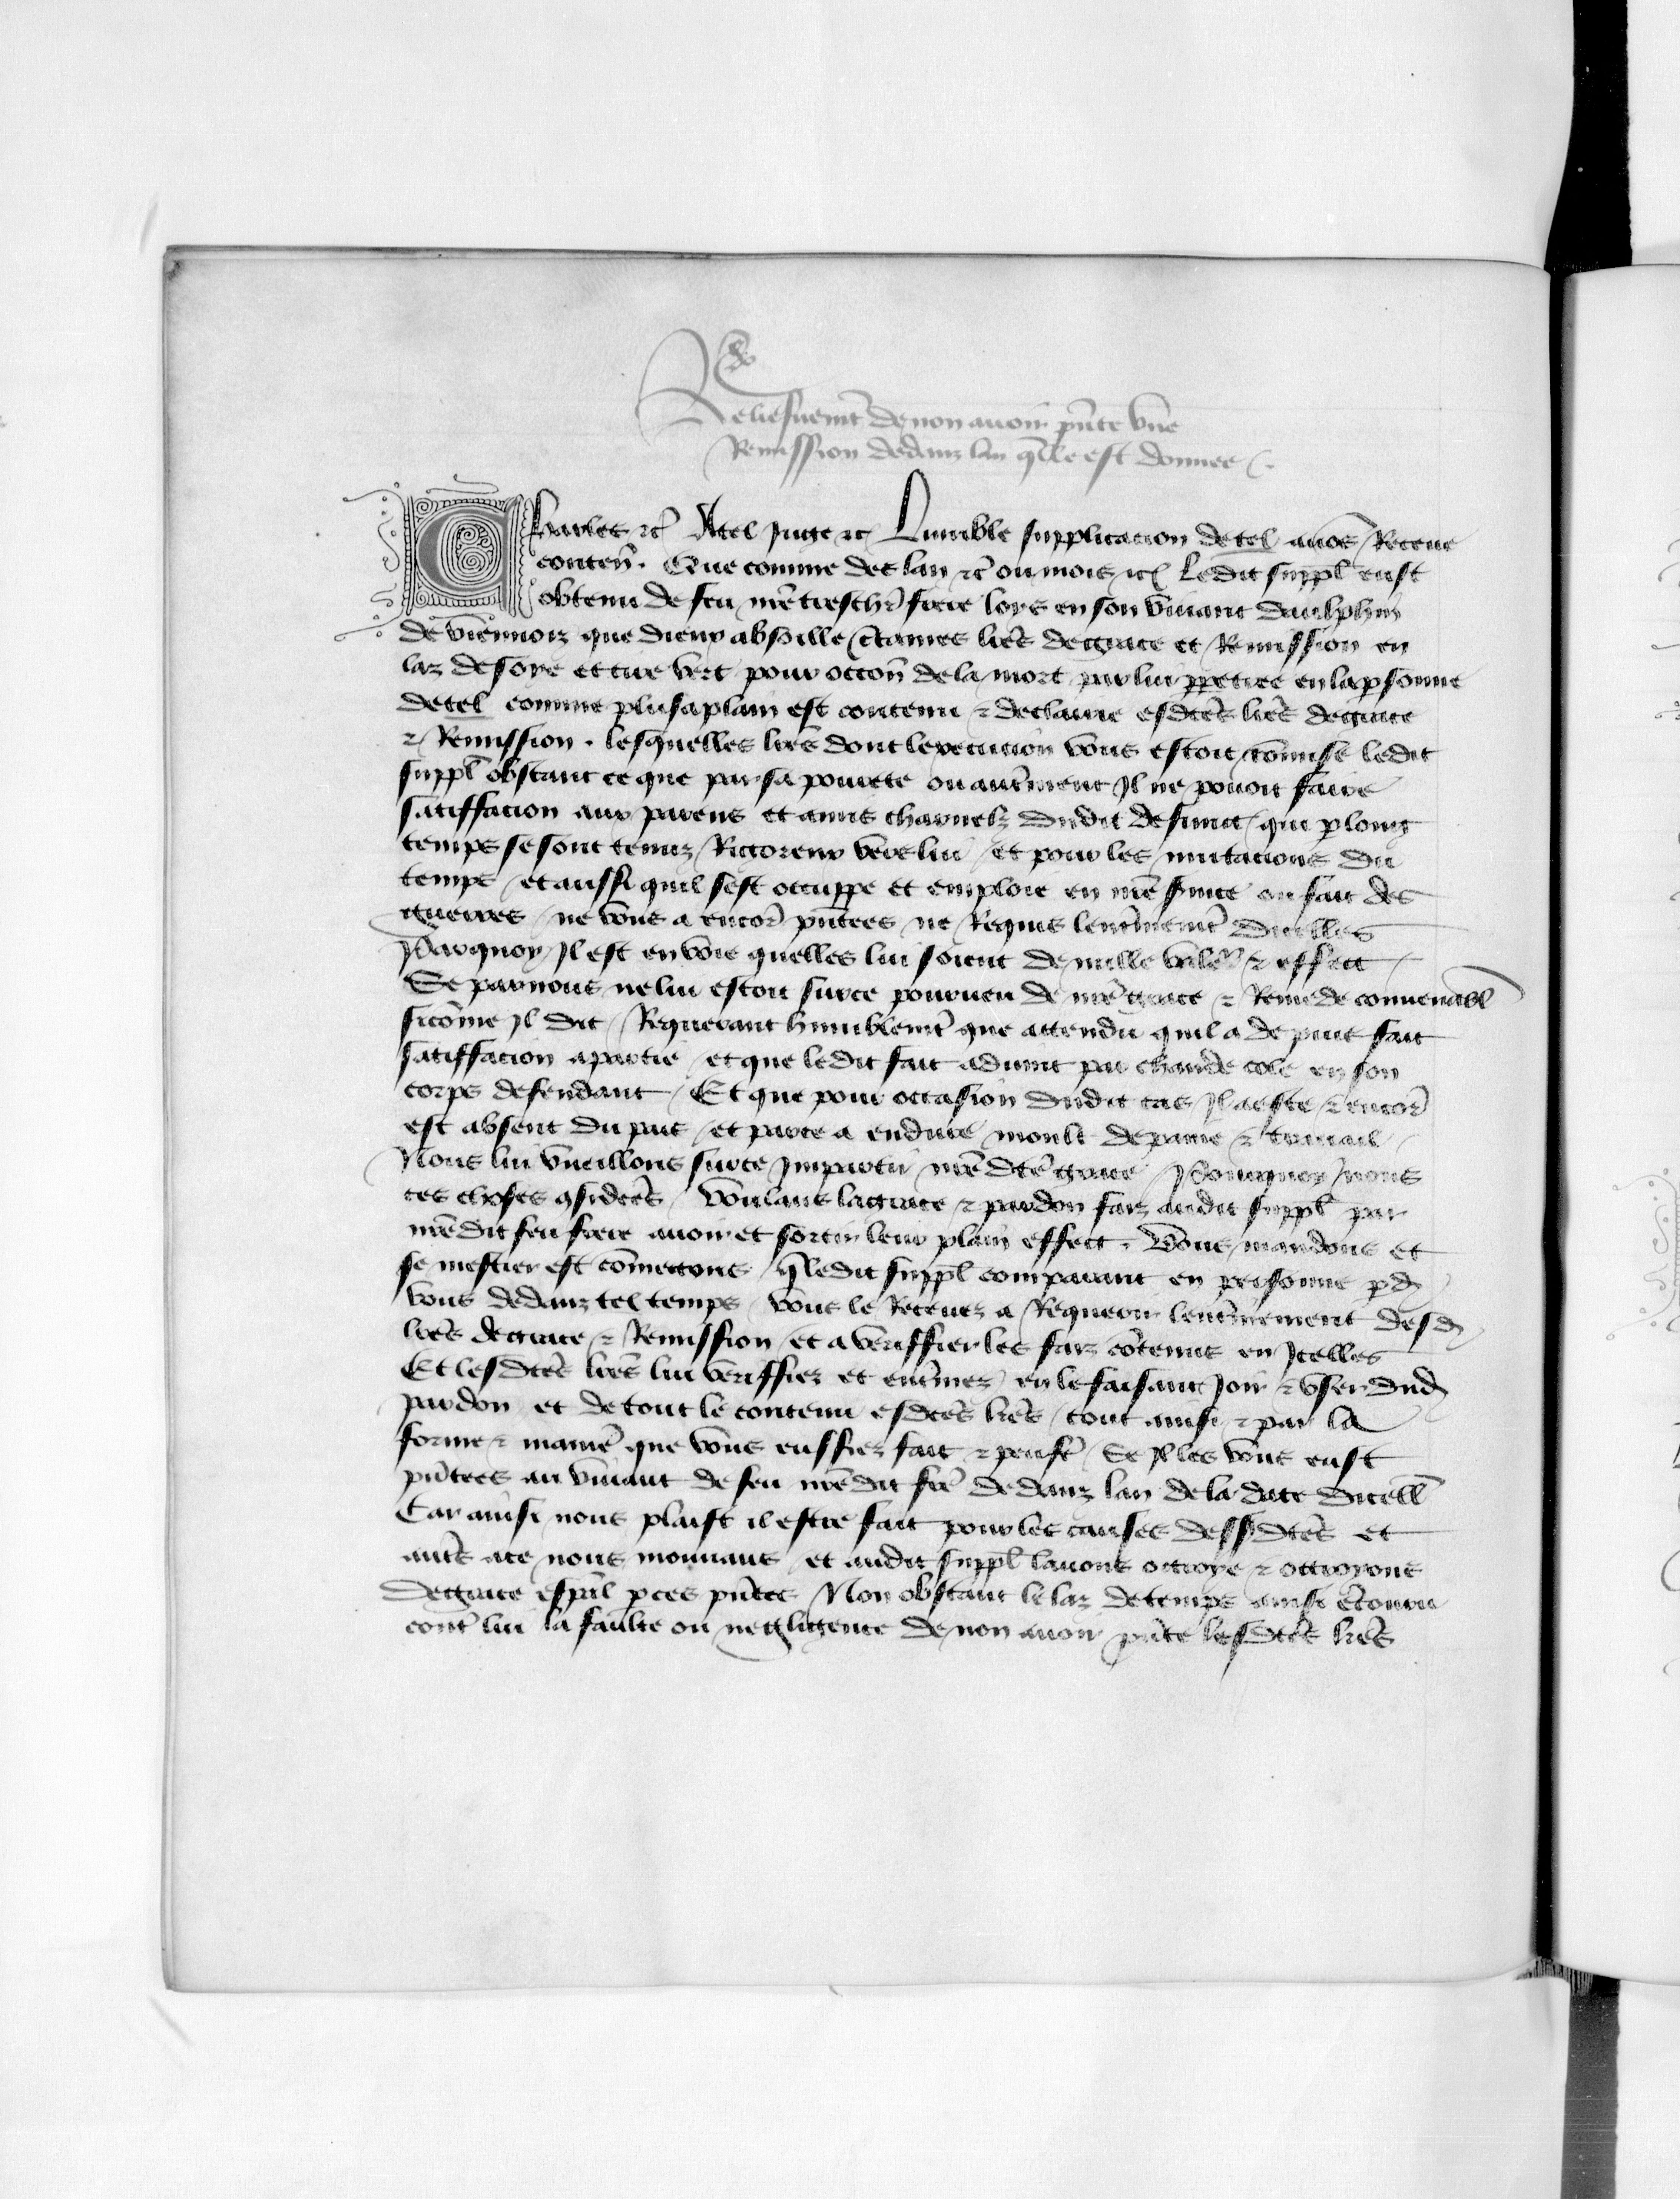 Reliefvemt de non avoir pnte vne
Remission dedanz lan qlle est donnee
Charles etc A tel juge etc Lumble supplicacion de tel avos Receue
conten. Que comme des lan etc ou mois etc Ledit suppl eust
obtenu de feu nre treschr frere lors en son viuant daulphin
de viennoiz que dieux absoille ctaines lres de grace et Remission en
laz de soye et cire vert pour occon de la mort par lui ppetree en la psonne
de tel comme plus a plain est contenu & declaire esdtes lres de grace
& Remission . lesquelles lres dont lexecucion vous estoit comise ledit
suppl obstant ce que par sa pourete ou autrement Il ne pouoit faire
satiffacion aux parens et amis charnelz dudit defunct que p long
temps se sont tenuz Rigoreux vers lui / et pour les mutacions du
temps / et aussi quil sest occuppe et emploie en nre seruice ou fait des
guerres / ne vous a encor pntees ne Requis lentrinemt dicelles
Parquoy Il est en voie quelles lui soient de nulle valeur & effect
Se par nous ne lui estoit sur ce pourueu de nre grace & Remede conuenabl
sicome Il dit / Requerant humblemt que attendu quil a de pnt fait
satiffacion a partie / et que ledit fait aduint par chaude cole en son
corps defendant / Et que pour occasion dudit cas Il a este & encor
est absent du pais / et par ce a endure moult de paine & trauail
Nous lui vueillons sur ce Impartir nre dte grace / Pourquoy nous
ces choses qsidees / Voulans la grace & pardon faiz audit suppl par
nre dit feu frere auoir et sortir leur plain effect . Vous mandons et
se mestier est comettons / q ledit suppl comparant en personne pd
vous dedanz tel temps / vous le Receuez a Requerir lentrinement desd
lres de grace & Remission et a veriffier les faiz cotenus en Icelles
Et lesdtes lres lui veriffiez et entrinez en le faisant Joir & vser dud
pardon et de tout le contenu esdtes lres / tout ainsi & par la
forme & manie que vous eussiez fait & peust / Se Il les vous eust
pntees au viuant de feu nre dit fre dedanz lan de la date dicell
Car ainsi nous plaist il estre fait pour les causes dessusdtes et
autes a ce nous mouuans / et audit suppl lauons octroye & octroyons
de grace espal p ces pntes Non obstant le laz de temps ainsi encouru
cont lui la faulte ou negligence de non auoir pnte lesdtes lres